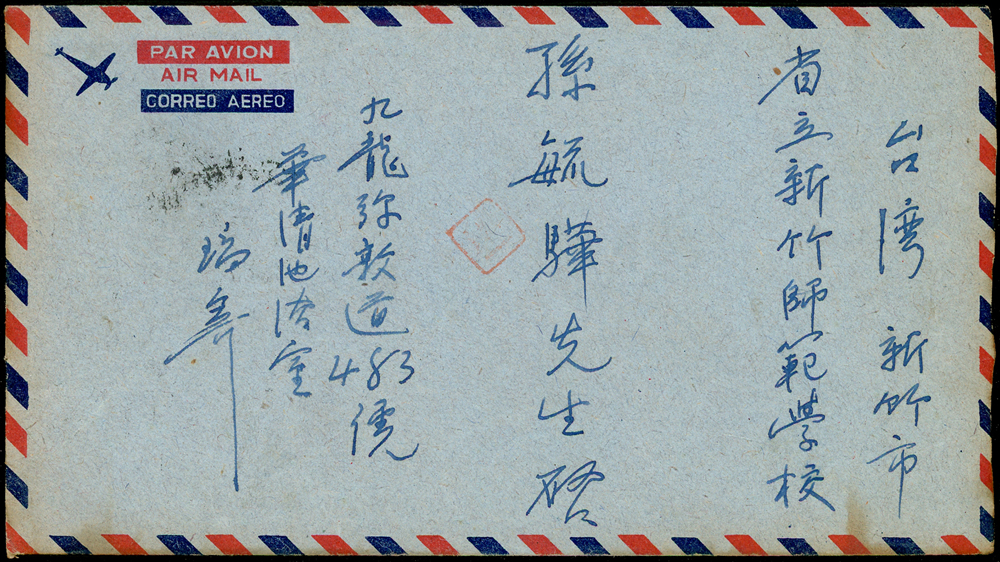 PAR AVION
AIR MAIL
CORREO AEREO
台湾 新竹市
省立新竹師範學校
孫毓驊先生啓
九龍弥敦道483號
華清池浴室
瑞寄